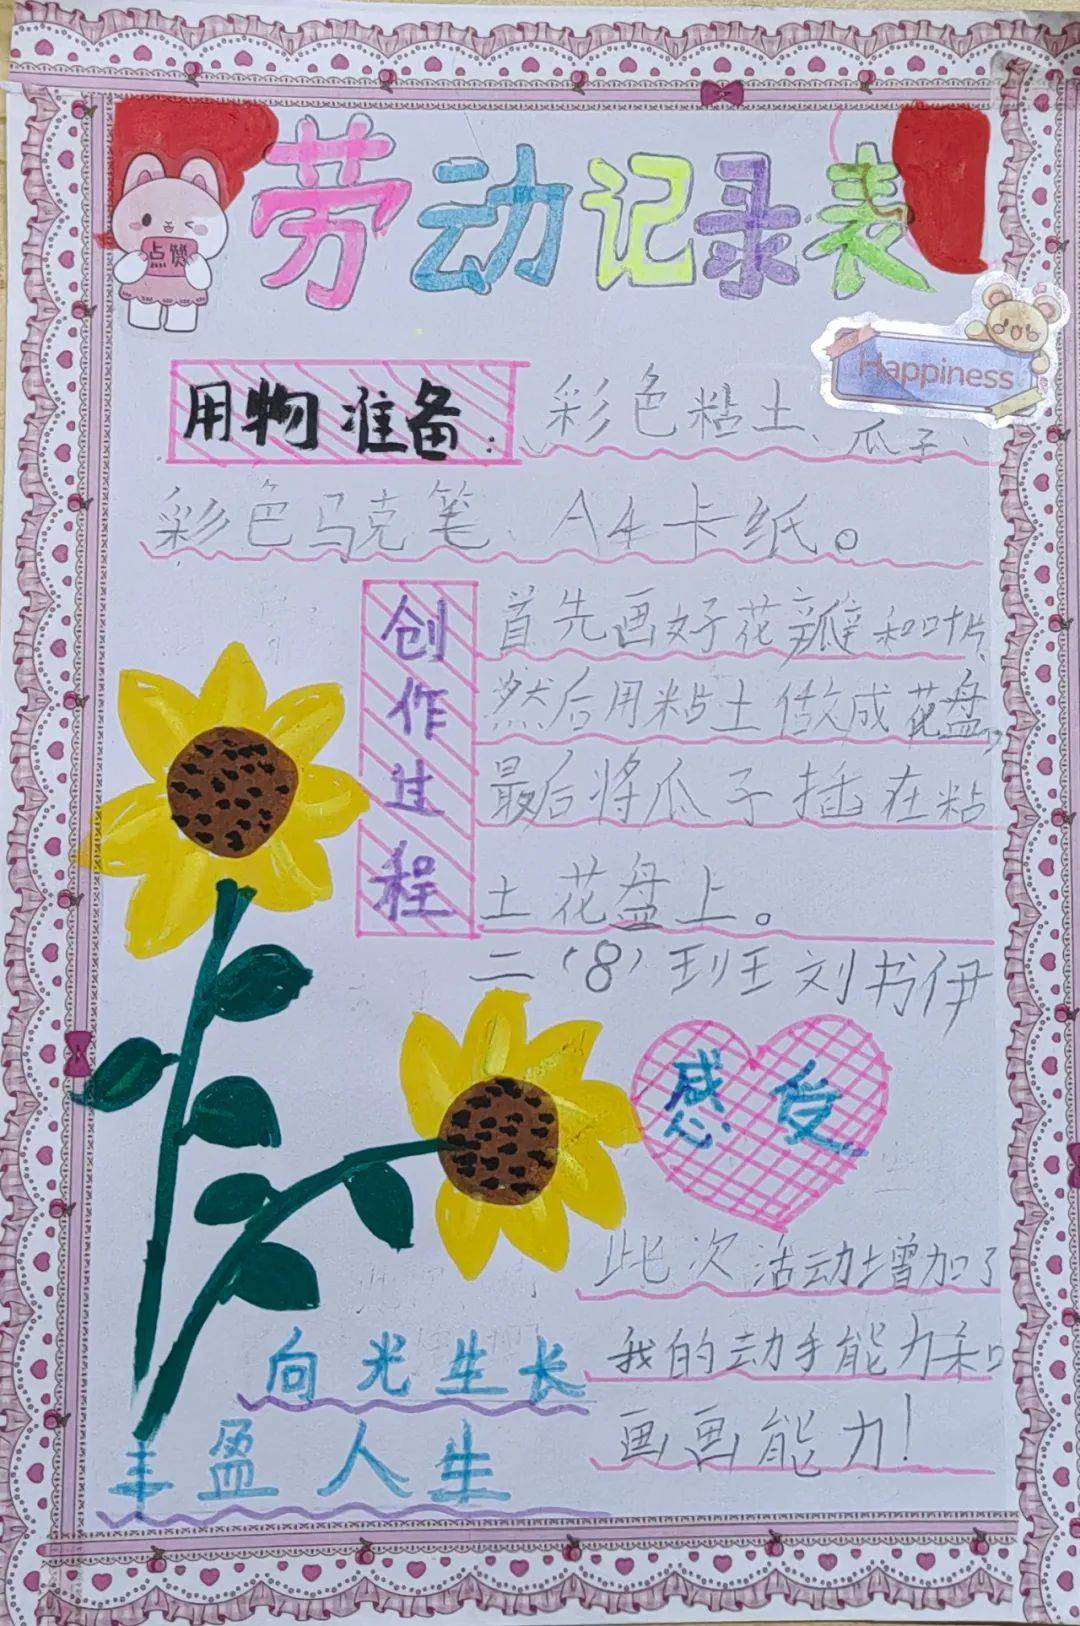 劳动记录表
点赞
Happiness
用物准备:彩色粘土、瓜子、
彩色马克笔、A4卡纸。
创作过程
首先画好花瓣和叶片
然后用粘土做成花盘,
最后将瓜子插在粘
土花盘上。
二(8)班王刘书伊
感受
此次活动增加了
我的动手能力和
画画能力!
向光生长
丰盈人生